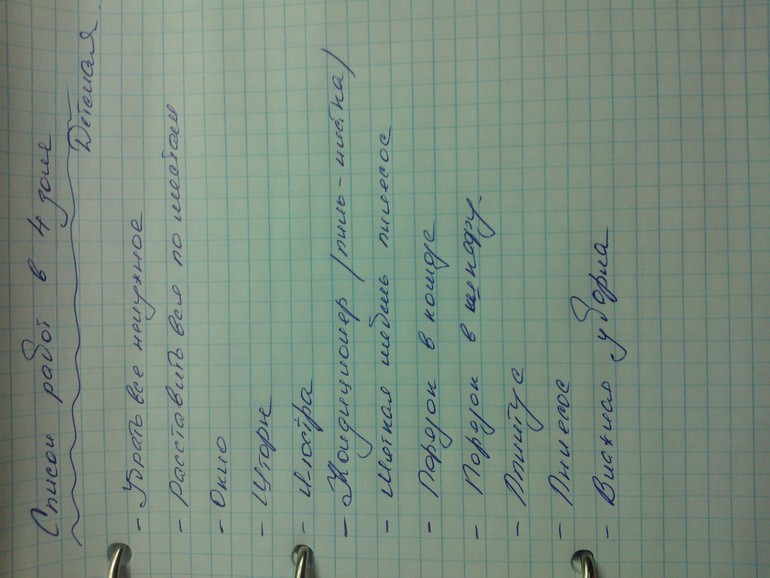 Список работ в 4 зоне
Детская
- Убрать все ненужное
- Расставить все по местам
- Окно
- Шторы
- Люстра
- Кондиционер /пыль-щетка/
- Мягкая мебель пылесос
- Порядок в комоде
- Порядок в шкафу
- Плинтус
- Пылесос
- Влажная уборка